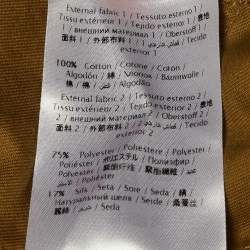 External fabric 1 / Tessuto esterno 1 /
Tissu extérieur 1 / Tejido exterior 1 / 表地
1 / внешний материал 1 / Oberstoff 1 /
面料 1 / 外部布料 1 / قماش خارجي 1 / Tecido
exterior 1
100% Cotton / Cotone / Coton /
Algodón / 綿 / Хлопок / Baumwolle /
棉 / 棉 / قطن / Algodão
External fabric 2 / Tessuto esterno 2 /
Tissu extérieur 2 / Tejido exterior 2 / 表地
2 / внешний материал 2 / Oberstoff 2 /
面料 2 / 外部布料 2 / قماش خارجي 2 / Tecido
exterior 2
75% Polyester / Poliestere / Polyester /
Poliéster / ポリエステル / Полиэфир /
Polyester / 聚酯纤维 / 聚酯纖維 /
Poliéster
17% Silk / Seta / Soie / Seda / 絹 /
Натуральный шелк / Seide / 桑蚕丝 /
蠶絲 / حرير / Seda